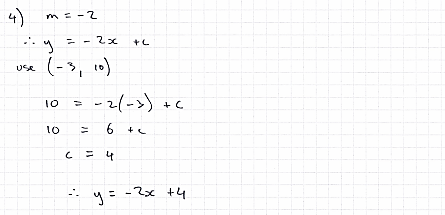 4) m = -2
∴ y = -2x + c
use (-3, 10)
10 = -2(-3) + c
10 = 6 + c
c = 4
∴ y = -2x + 4